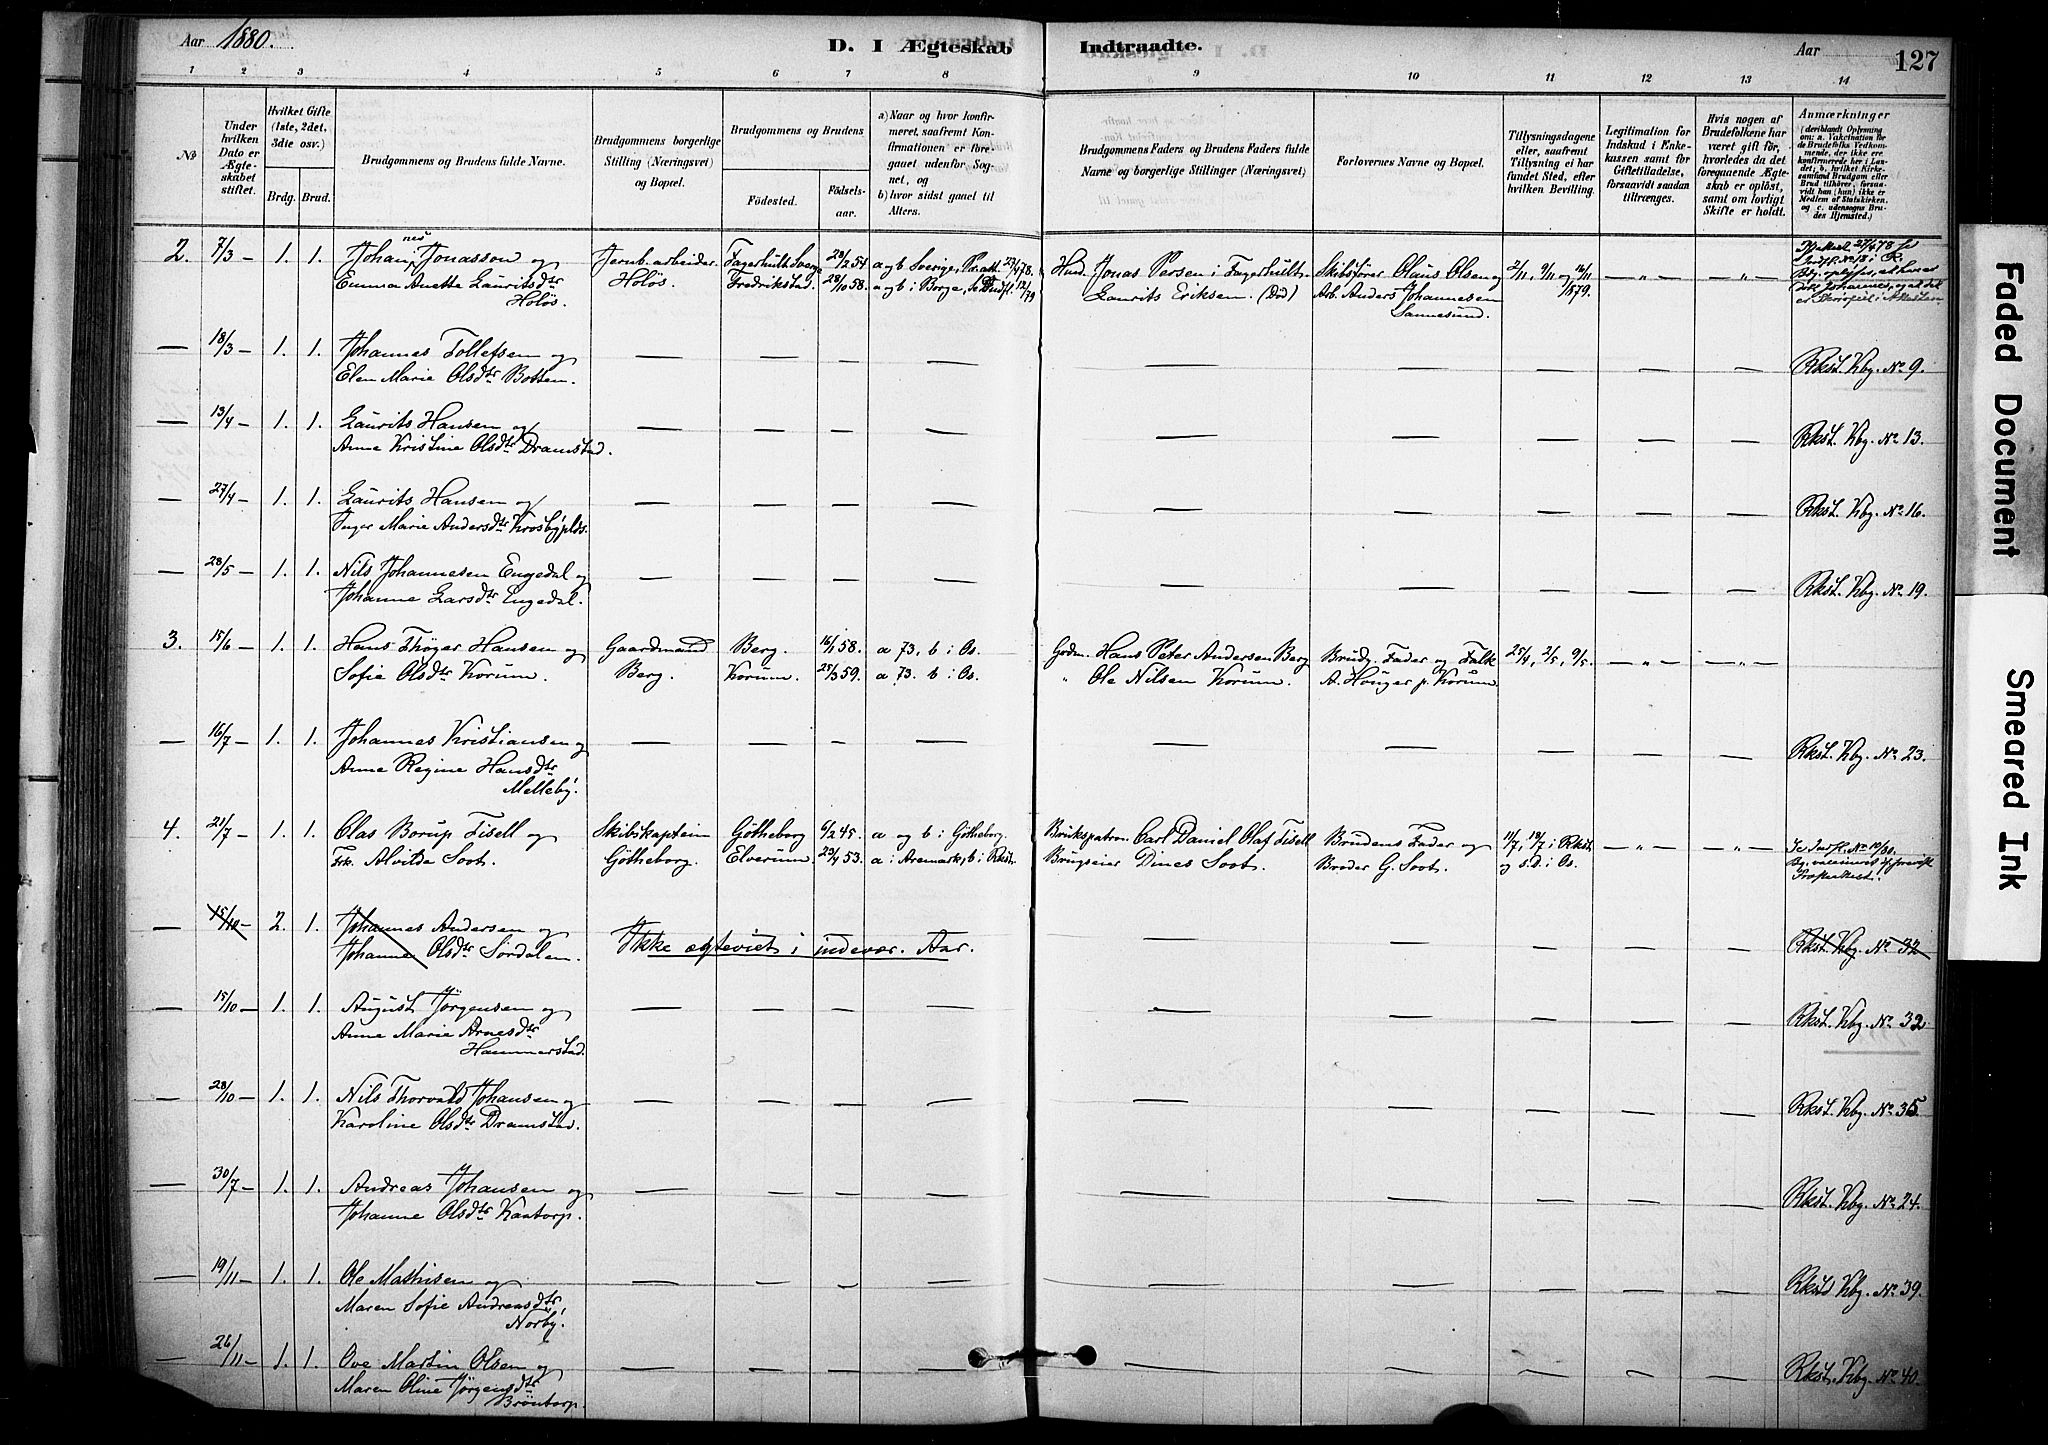 Aar 1880.
D. I Ægteskab Indtraadte.
Aar
127
1 2 3 4 5 6 7 8 9 10 11 12 13 14
No
Under hvilken Dato er Ægteskabet stiftet.
Hvilket Gifte (1ste, 2det, 3die osv.)
Brdg. Brud.
Brudgommens og Brudens fulde Navne.
Brudgommens borgerlige Stilling (Næringsvei) og Bopæl.
Brudgommens og Brudens
Födested. Födselsaar.
a) Naar og hvor konfirmeret, saafremt Konfirmationen er foregaaet udenfor Sognet, og
b) hvor sidst gaaet til Alters.
Brudgommens Faders og Brudens Faders fulde Navne og borgerlige Stillinger (Næringsvei)
Forlovernes Navne og Bopæl.
Tillysningsdagene eller, saafremt Tillysning ei har fundet Sted, efter hvilken Bevilling.
Legitimation for Indskud i Enkekassen samt for Giftetilladelse, forsaavidt saadan tiltrænges.
Hvis nogen af Brudefolkene har været gift för, hvorledes da det foregaaende Ægteskab er oplöst, samt om lovligt Skifte er holdt.
Anmærkninger
(deriblandt Oplysning om: a. Vakcination for de Brudefolks Vedkommende, der ikke ere konfirmerede her i Landet; b. hvilket Kirkesamfund Brudgom eller Brud tilhörer, forsaavidt han (hun) ikke er Medlem af Statskirken, og c. udensogns Brudes Hjemsted.)
2. 7/3 1. 1. Johannes Jonasson og Jernb. arbeider Fagerhult Sverge 28/2 54 a og b i Sverige, Pr. att. 27/4 78. Husd. Jonas Persen i Fagerhult, Skibsförer Olaus Olsen og 2/11, 9/11 og 16/11 1879. — " — — " —
Emma Anette Lauritsdtr Holös. Holös. Fredrikstad. 28/10 58. a og b i Borge, Laurits Eriksen. (Död) Arb. Anders Johannesen Sannesund.
— 18/3 — 1. 1. Johannes Tollefsen og
Elen Marie Olsdtr Botten. — — — — — — — — — Rkst. Kbg. No 9.
— 13/4 — 1. 1. Laurits Hansen og
Anne Kristine Olsdtr Dramstad. — — — — — — — — — Rkst. Kbg. No 13.
— 27/4 — 1. 1. Laurits Hansen og
Inger Marie Andersdtr Krosbyplds. — — — — — — — — — Rkst. Kbg. No 16.
— 28/5 — 1. 1. Nils Johannesen Engedal og
Johanne Larsdtr Engedal. — — — — — — — — — Rkst. Kbg. No 19.
3. 15/6 — 1. 1. Hans Thöger Hansen og Gaardmand Berg. 16/1 58. a 73, b i Os. Gdm. Hans Peter Andersen Berg Brudg. Fader og Falk 25/4, 2/5, 9/5. — " — — " —
Sofie Olsdtr Korum. Berg. Korum. 25/3 59. a 73. b i Os. " Ole Nilsen Korum. A. Houger p. Korum.
— 16/7 — 1. 1. Johannes Kristiansen og
Anne Regine Hansdtr Melleby. — — — — — — — — — Rkst. Kbg. No 23.
4. 21/7 — 1. 1. Olas Borup Tisell og Skibskaptein Götheborg 6/2 45. a og b i Götheborg. Brukspatron Carl Daniel Olaf Tisell Brudens Fader og 11/7, 18/7 i Rkst. — " — — " — Se Indfl. No 10/80.
Frk. Alvilde Soot. Götheborg. Elverum. 23/4 53. a i Aremark, b i Rkst. Brugseier Dines Soot. Broder G. Soot. og s.D. i Os.
— 15/10 — 2. 1. Johannes Andersen og
Johanne Olsdtr Sördalen. Ikke ægteviet i indevær. Aar. — — — — — Rkst. Kbg. No 32
— 15/10 — 1. 1. August Jörgensen og
Anne Marie Arnesdtr Hammerstad. — — — — — — — — — Rkst. Kbg. No 32
— 28/10 — 1. 1. Nils Thorvald Johansen og
Karoline Olsdtr Dramstad. — — — — — — — — — Rkst. Kbg. No 35
— 30/7 — 1. 1. Andreas Johansen og
Johanne Olsdtr Kantorp. — — — — — — — — — Rkst. Kbg. No 24.
— 19/11 — 1. 1. Ole Mathisen og
Maren Sofie Andreasdtr Norby. — — — — — — — — — Rkst Kbg. No 39.
— 26/11 — 1. 1. Ove Martin Olsen og
Maren Oline Jörgensdtr Bröntorp. — — — — — — — — — Rkst. Kbg. No 40.
Faded Document
Smeared Ink